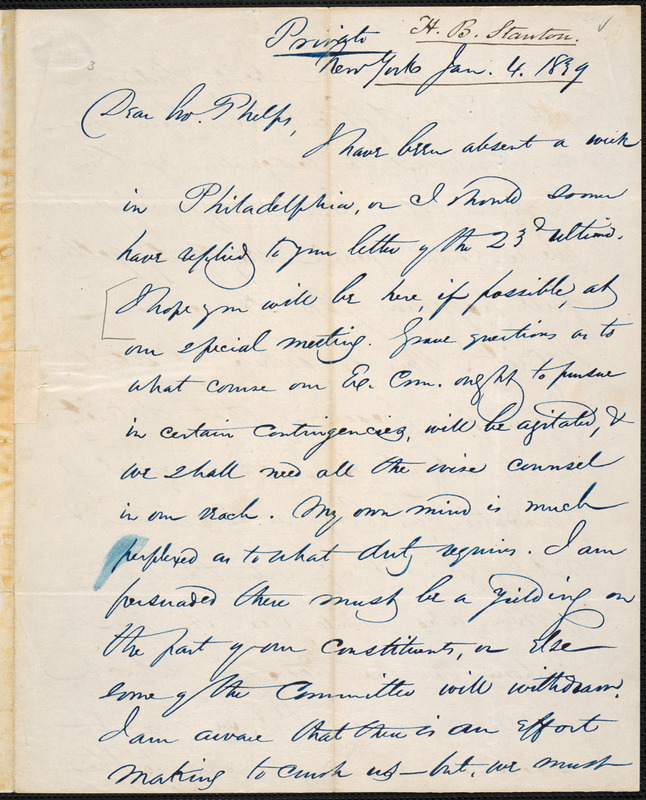 Private
H. B. Stanton.
3
New York Jan. 4. 1839
Dear bro. Phelps,
I have been absent a week
in Philadelphia, or I should sooner
have replied to your letter of the 23d ultimo.
I hope you will be here, if possible, at
our special meeting. Grave questions as to
what course our Ex. Com. ought to pursue
in certain contingencies, will be agitated, &
we shall need all the wise counsel
in our reach. My own mind is much
perplexed as to what duty requires. I am
persuaded there must be a yielding on
the part of our constituents, or else
some of the Committee will withdraw.
I am aware that there is an effort
making to crush us—but, we must